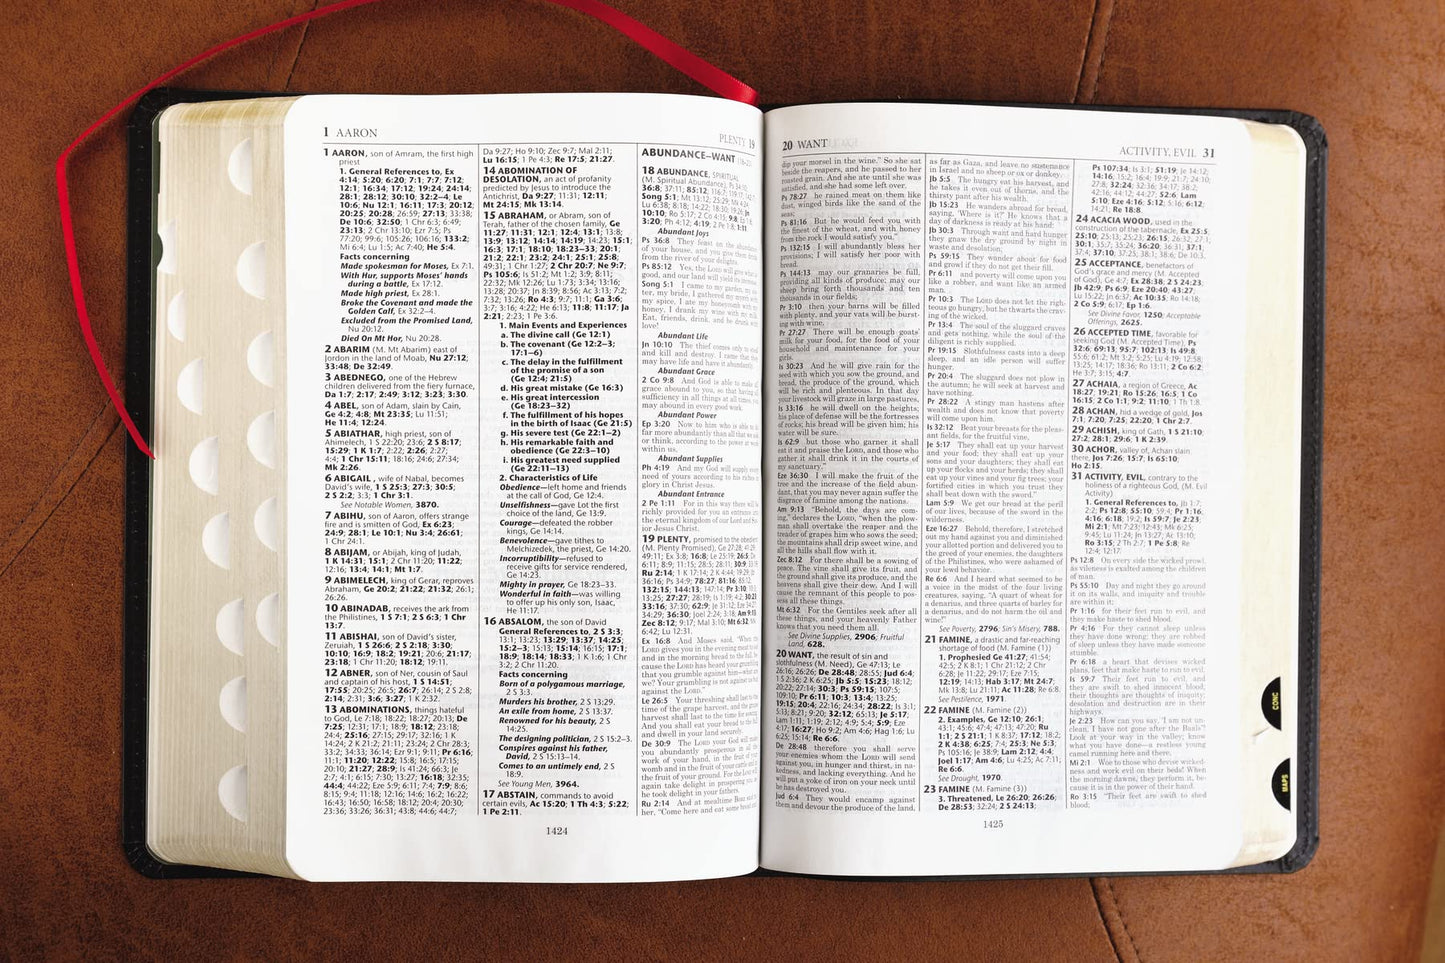 1 AARON
PLENTY 19
1 AARON, son of Amram, the first high
priest
1. General References to, Ex
4:14; 5:20; 6:20; 7:1; 7:7; 7:12;
12:1; 16:34; 17:12; 19:24; 24:14;
28:1; 28:12; 30:10; 32:2–4; Le
10:6; Nu 12:1; 16:11; 17:3; 20:12;
20:25; 20:28; 26:59; 27:13; 33:38;
De 10:6; 32:50; 1 Chr 6:3; 6:49;
23:13; 2 Chr 13:10; Ezr 7:5; Ps
77:20; 99:6; 105:26; 106:16; 133:2;
Mi 6:4; Lu 1:5; Ac 7:40; He 5:4.
Facts concerning
Made spokesman for Moses, Ex 7:1.
With Hur, supports Moses' hands
during a battle, Ex 17:12.
Made high priest, Ex 28:1.
Broke the Covenant and made the
Golden Calf, Ex 32:2–4.
Excluded from the Promised Land,
Nu 20:12.
Died On Mt Hor, Nu 20:28.
2 ABARIM (M. Mt Abarim) east of
Jordon in the land of Moab, Nu 27:12;
33:48; De 32:49.
3 ABEDNEGO, one of the Hebrew
children delivered from the fiery furnace,
Da 1:7; 2:17; 2:49; 3:12; 3:23; 3:30.
4 ABEL, son of Adam, slain by Cain,
Ge 4:2; 4:8; Mt 23:35; Lu 11:51;
He 11:4; 12:24.
5 ABIATHAR, high priest, son of
Ahimelech, 1 S 22:20; 23:6; 2 S 8:17;
15:29; 1 K 1:7; 2:22; 2:26; 2:27;
4:4; 1 Chr 15:11; 18:16; 24:6; 27:34;
Mk 2:26.
6 ABIGAIL , wife of Nabal, becomes
David's wife, 1 S 25:3; 27:3; 30:5;
2 S 2:2; 3:3; 1 Chr 3:1.
See Notable Women, 3870.
7 ABIHU, son of Aaron, offers strange
fire and is smitten of God, Ex 6:23;
24:9; 28:1; Le 10:1; Nu 3:4; 26:61;
1 Chr 24:1.
8 ABIJAM, or Abijah, king of Judah,
1 K 14:31; 15:1; 2 Chr 11:20; 11:22;
12:16; 13:4; 14:1; Mt 1:7.
9 ABIMELECH, king of Gerar, reproves
Abraham, Ge 20:2; 21:22; 21:32; 26:1;
26:26.
10 ABINADAB, receives the ark from
the Philistines, 1 S 7:1; 2 S 6:3; 1 Chr
13:7.
11 ABISHAI, son of David's sister,
Zeruiah, 1 S 26:6; 2 S 2:18; 3:30;
10:10; 16:9; 18:2; 19:21; 20:6; 21:17;
23:18; 1 Chr 11:20; 18:12; 19:11.
12 ABNER, son of Ner, cousin of Saul
and captain of his host, 1 S 14:51;
17:55; 20:25; 26:5; 26:7; 26:14; 2 S 2:8;
2:14; 2:31; 3:6; 3:27; 1 K 2:32.
13 ABOMINATIONS, things hateful
to God, Le 7:18; 18:22; 18:27; 20:13; De
7:25; 12:31; 17:1; 18:9; 18:12; 23:18;
24:4; 25:16; 27:15; 29:17; 32:16; 1 K
14:24; 2 K 21:2; 21:11; 23:24; 2 Chr 28:3;
33:2; 34:33; 36:14; Ezr 9:1; 9:11; Pr 6:16;
11:1; 11:20; 12:22; 15:8; 16:5; 17:15;
20:10; 21:27; 28:9; Is 41:24; 66:3; Je
2:7; 4:1; 6:15; 7:30; 13:27; 16:18; 32:35;
44:4; 44:22; Eze 5:9; 6:11; 7:4; 7:9; 8:6;
8:15; 9:4; 11:18; 12:16; 14:6; 16:2; 16:22;
16:43; 16:50; 16:58; 18:12; 20:4; 20:30;
23:36; 33:26; 36:31; 43:8; 44:6; 44:7;
Da 9:27; Ho 9:10; Zec 9:7; Mal 2:11;
Lu 16:15; 1 Pe 4:3; Re 17:5; 21:27.
14 ABOMINATION OF
DESOLATION, an act of profanity
predicted by Jesus to introduce the
Antichrist, Da 9:27; 11:31; 12:11;
Mt 24:15; Mk 13:14.
15 ABRAHAM, or Abram, son of
Terah, father of the chosen family, Ge
11:27; 11:31; 12:1; 12:4; 13:1; 13:8;
13:9; 13:12; 14:14; 14:19; 14:23; 15:1;
16:3; 17:1; 18:10; 18:23–33; 20:1;
21:2; 22:1; 23:2; 24:1; 25:1; 25:8;
49:31; 1 Chr 1:27; 2 Chr 20:7; Ne 9:7;
Ps 105:6; Is 51:2; Mt 1:2; 3:9; 8:11;
22:32; Mk 12:26; Lu 1:73; 3:34; 13:16;
13:28; 20:37; Jn 8:39; 8:56; Ac 3:13; 7:2;
7:32; 13:26; Ro 4:3; 9:7; 11:1; Ga 3:6;
3:7; 3:16; 4:22; He 6:13; 11:8; 11:17; Ja
2:21; 2:23; 1 Pe 3:6.
1. Main Events and Experiences
a. The divine call (Ge 12:1)
b. The covenant (Ge 12:2–3;
17:1–6)
c. The delay in the fulfillment
of the promise of a son
(Ge 12:4; 21:5)
d. His great mistake (Ge 16:3)
e. His great intercession
(Ge 18:23–32)
f. The fulfillment of his hopes
in the birth of Isaac (Ge 21:5)
g. His severe test (Ge 22:1–2)
h. His remarkable faith and
obedience (Ge 22:3–10)
i. His greatest need supplied
(Ge 22:11–13)
2. Characteristics of Life
Obedience—left home and friends
at the call of God, Ge 12:4.
Unselfishness—gave Lot the first
choice of the land, Ge 13:9.
Courage—defeated the robber
kings, Ge 14:14.
Benevolence—gave tithes to
Melchizedek, the priest, Ge 14:20.
Incorruptibility—refused to
receive gifts for service rendered,
Ge 14:23.
Mighty in prayer, Ge 18:23–33.
Wonderful in faith—was willing
to offer up his only son, Isaac,
He 11:17.
16 ABSALOM, the son of David
General References to, 2 S 3:3;
13:1; 13:23; 13:29; 13:37; 14:25;
15:2–3; 15:13; 15:14; 16:15; 17:1;
18:9; 18:14; 18:33; 1 K 1:6; 1 Chr
3:2; 2 Chr 11:20.
Facts concerning
Born of a polygamous marriage,
2 S 3:3.
Murders his brother, 2 S 13:29.
An exile from home, 2 S 13:37.
Renowned for his beauty, 2 S
14:25.
The designing politician, 2 S 15:2–3.
Conspires against his father,
David, 2 S 15:13–14.
Comes to an untimely end, 2 S
18:9.
See Young Men, 3964.
17 ABSTAIN, commands to avoid
certain evils, Ac 15:20; 1 Th 4:3; 5:22;
1 Pe 2:11.
ABUNDANCE—WANT
18 ABUNDANCE, SPIRITUAL
(M. Spiritual Abundance), Ps 34:10;
36:8; 37:11; 85:12;
Song 5:1; Mt 13:12; 25:29; Mk 4:24;
Lu 6:38; 8:18; 14:22; 18:30; 19:26; Jn
10:10; Ro 5:17; 2 Co 4:15; 9:8; Ep 1:8;
3:20; Ph 4:12; 4:19; 2 Pe 1:8; 1:11
Abundant Joys
Ps 36:8 They feast on the abundance
of your house, and you give them drink
from the river of your delights.
Ps 85:12 Yes, the LORD will give what is
good, and our land will yield its increase.
Song 5:1 I came to my garden, my sis-
ter, my bride, I gathered my myrrh with
my spice, I ate my honeycomb with my
honey, I drank my wine with my milk.
Eat, friends, drink, and be drunk with
love!
Abundant Life
Jn 10:10 The thief comes only to steal
and kill and destroy. I came that they
may have life and have it abundantly.
Abundant Grace
2 Co 9:8 And God is able to make all
grace abound to you, so that having all
sufficiency in all things at all times, you
may abound in every good work.
Abundant Power
Ep 3:20 Now to him who is able to do
far more abundantly than all that we ask
or think, according to the power at work
within us.
Abundant Supplies
Ph 4:19 And my God will supply every
need of yours according to his riches in
glory in Christ Jesus.
Abundant Entrance
2 Pe 1:11 For in this way there will be
richly provided for you an entrance into
the eternal kingdom of our Lord and Sav-
ior Jesus Christ.
19 PLENTY, promised to the obedient
(M. Plenty Promised), Ge 27:28; 41:29;
49:11; Ex 3:8; 16:8; Le 25:19; 26:5; De
6:11; 8:9; 11:15; 28:5; 28:11; 30:9; 33:19;
Ru 2:14; 1 K 17:14; 2 K 4:44; 19:29; Jb
36:16; Ps 34:9; 78:27; 81:16; 85:12;
132:15; 144:13; 147:14; Pr 3:10; 10:3;
13:25; 27:27; 28:19; Is 1:19; 4:2; 30:23;
33:16; 37:30; 62:9; Je 31:12; Eze 34:27;
34:29; 36:30; Joel 2:24; 3:18; Am 9:13;
Zec 8:12; 9:17; Mal 3:10; Mt 6:32; Mk
6:42; Lu 12:31.
Ex 16:8 And Moses said, "When the
LORD gives you in the evening meat to eat
and in the morning bread to the full, be-
cause the LORD has heard your grumbling
that you grumble against him—what are
we? Your grumbling is not against us but
against the LORD."
Le 26:5 Your threshing shall last to the
time of the grape harvest, and the grape
harvest shall last to the time for sowing.
And you shall eat your bread to the full
and dwell in your land securely.
De 30:9 The LORD your God will make
you abundantly prosperous in all the
work of your hand, in the fruit of your
womb and in the fruit of your cattle and in
the fruit of your ground. For the LORD will
again take delight in prospering you, as
he took delight in your fathers.
Ru 2:14 And at mealtime Boaz said to
her, "Come here and eat some bread and
1424
20 WANT
ACTIVITY, EVIL 31
dip your morsel in the wine." So she sat
beside the reapers, and he passed to her
roasted grain. And she ate until she was
satisfied, and she had some left over.
Ps 78:27 he rained meat on them like
dust, winged birds like the sand of the
seas;
Ps 81:16 But he would feed you with
the finest of the wheat, and with honey
from the rock I would satisfy you."
Ps 132:15 I will abundantly bless her
provisions; I will satisfy her poor with
bread.
Ps 144:13 may our granaries be full,
providing all kinds of produce; may our
sheep bring forth thousands and ten
thousands in our fields;
Pr 3:10 then your barns will be filled
with plenty, and your vats will be burst-
ing with wine.
Pr 27:27 There will be enough goats'
milk for your food, for the food of your
household and maintenance for your
girls.
Is 30:23 And he will give rain for the
seed with which you sow the ground, and
bread, the produce of the ground, which
will be rich and plenteous. In that day
your livestock will graze in large pastures,
Is 33:16 he will dwell on the heights;
his place of defense will be the fortresses
of rocks; his bread will be given him; his
water will be sure.
Is 62:9 but those who garner it shall
eat it and praise the LORD, and those who
gather it shall drink it in the courts of
my sanctuary."
Eze 36:30 I will make the fruit of the
tree and the increase of the field abun-
dant, that you may never again suffer the
disgrace of famine among the nations.
Am 9:13 "Behold, the days are com-
ing," declares the LORD, "when the plow-
man shall overtake the reaper and the
treader of grapes him who sows the seed;
the mountains shall drip sweet wine, and
all the hills shall flow with it.
Zec 8:12 For there shall be a sowing of
peace. The vine shall give its fruit, and
the ground shall give its produce, and the
heavens shall give their dew. And I will
cause the remnant of this people to pos-
sess all these things.
Mt 6:32 For the Gentiles seek after all
these things, and your heavenly Father
knows that you need them all.
See Divine Supplies, 2906; Fruitful
Land, 628.
20 WANT, the result of sin and
slothfulness (M. Need), Ge 47:13; Le
26:16; 26:26; De 28:48; 28:55; Jud 6:4;
1 S 2:36; 2 K 6:25; Jb 5:5; 15:23; 18:12;
20:22; 27:14; 30:3; Ps 59:15; 107:5;
109:10; Pr 6:11; 10:3; 13:4; 13:25;
19:15; 20:4; 22:16; 24:34; 28:22; Is 3:1;
5:13; 8:21; 9:20; 32:12; 65:13; Je 5:17;
Lam 1:11; 1:19; 2:12; 4:9; 5:4; 5:9; Eze
4:17; 16:27; Ho 9:2; Am 4:6; Hag 1:6; Lu
6:25; 15:14; Re 6:6.
De 28:48 therefore you shall serve
your enemies whom the LORD will send
against you, in hunger and thirst, in na-
kedness, and lacking everything. And he
will put a yoke of iron on your neck until
he has destroyed you.
Jud 6:4 They would encamp against
them and devour the produce of the land,
as far as Gaza, and leave no sustenance
in Israel and no sheep or ox or donkey.
Jb 5:5 The hungry eat his harvest, and
he takes it even out of thorns, and the
thirsty pant after his wealth.
Jb 15:23 He wanders abroad for bread,
saying, 'Where is it?' He knows that a
day of darkness is ready at his hand;
Jb 30:3 Through want and hard hunger
they gnaw the dry ground by night in
waste and desolation;
Ps 59:15 They wander about for food
and growl if they do not get their fill.
Pr 6:11 and poverty will come upon you
like a robber, and want like an armed
man.
Pr 10:3 The LORD does not let the righ-
teous go hungry, but he thwarts the crav-
ing of the wicked.
Pr 13:4 The soul of the sluggard craves
and gets nothing, while the soul of the
diligent is richly supplied.
Pr 19:15 Slothfulness casts into a deep
sleep, and an idle person will suffer
hunger.
Pr 20:4 The sluggard does not plow in
the autumn; he will seek at harvest and
have nothing.
Pr 28:22 A stingy man hastens after
wealth and does not know that poverty
will come upon him.
Is 32:12 Beat your breasts for the pleas-
ant fields, for the fruitful vine,
Je 5:17 They shall eat up your harvest
and your food; they shall eat up your
sons and your daughters; they shall eat
up your flocks and your herds; they shall
eat up your vines and your fig trees; your
fortified cities in which you trust they
shall beat down with the sword."
Lam 5:9 We get our bread at the peril
of our lives, because of the sword in the
wilderness.
Eze 16:27 Behold, therefore, I stretched
out my hand against you and diminished
your allotted portion and delivered you to
the greed of your enemies, the daughters
of the Philistines, who were ashamed of
your lewd behavior.
Re 6:6 And I heard what seemed to be
a voice in the midst of the four living
creatures, saying, "A quart of wheat for
a denarius, and three quarts of barley for
a denarius, and do not harm the oil and
wine!"
See Poverty, 2796; Sin's Misery, 788.
21 FAMINE, a drastic and far-reaching
shortage of food (M. Famine (1))
1. Prophesied Ge 41:27; 41:54;
42:5; 2 K 8:1; 1 Chr 21:12; 2 Chr
6:28; Je 11:22; 29:17; Eze 7:15;
12:19; 14:13; Hab 3:17; Mt 24:7;
Mk 13:8; Lu 21:11; Ac 11:28; Re 6:8.
See Pestilence, 1971.
22 FAMINE (M. Famine (2))
2. Examples, Ge 12:10; 26:1;
43:1; 45:6; 47:4; 47:13; 47:20; Ru
1:1; 2 S 21:1; 1 K 8:37; 17:12; 18:2;
2 K 4:38; 6:25; 7:4; 25:3; Ne 5:3;
Ps 105:16; Je 38:9; Lam 2:12; 4:4;
Joel 1:17; Am 4:6; Lu 4:25; Ac 7:11;
Re 6:6.
See Drought, 1970.
23 FAMINE (M. Famine (3))
3. Threatened, Le 26:20; 26:26;
De 28:53; 32:24; 2 S 24:13;
Ps 107:34; Is 3:1; 51:19; Je 14:12;
14:16; 15:2; 16:4; 19:9; 21:7; 24:10;
27:8; 32:24; 32:36; 34:17; 38:2;
42:16; 44:12; 44:27; 52:6; Lam
5:10; Eze 4:16; 5:12; 5:16; 6:12;
14:21; Re 18:8.
24 ACACIA WOOD, used in the
construction of the tabernacle, Ex 25:5;
25:10; 25:13; 25:23; 26:15; 26:32; 27:1;
30:1; 35:7; 35:24; 36:20; 36:31; 37:1;
37:4; 37:10; 37:25; 38:1; 38:6; De 10:3.
25 ACCEPTANCE, benefactors of
God's grace and mercy (M. Accepted
of God), Ge 4:7; Ex 28:38; 2 S 24:23;
Jb 42:9; Ps 6:9; Eze 20:40; 43:27;
Lu 15:22; Jn 6:37; Ac 10:35; Ro 14:18;
2 Co 5:9; 6:17; Ep 1:6.
See Divine Favor, 1250; Acceptable
Offerings, 2625.
26 ACCEPTED TIME, favorable for
seeking God (M. Accepted Time), Ps
32:6; 69:13; 95:7; 102:13; Is 49:8;
55:6; 61:2; Mt 3:2; 5:25; Lu 4:19; 12:58;
13:25; 14:17; 18:36; Ro 13:11; 2 Co 6:2;
He 3:7; 3:15; 4:7.
27 ACHAIA, a region of Greece, Ac
18:27; 19:21; Ro 15:26; 16:5; 1 Co
16:15; 2 Co 1:1; 9:2; 11:10; 1 Th 1:8.
28 ACHAN, hid a wedge of gold, Jos
7:1; 7:20; 7:25; 22:20; 1 Chr 2:7.
29 ACHISH, king of Gath, 1 S 21:10;
27:2; 28:1; 29:6; 1 K 2:39.
30 ACHOR, valley of, Achan slain
there, Jos 7:26; 15:7; Is 65:10;
Ho 2:15.
31 ACTIVITY, EVIL, contrary to the
holiness of a righteous God, (M. Evil
Activity)
1. General References to, Jb 1:7;
2:2; Ps 12:8; 55:10; 59:4; Pr 1:16;
4:16; 6:18; 19:2; Is 59:7; Je 2:23;
Mi 2:1; Mt 7:23; 12:43; Mk 6:25;
9:45; Lu 11:24; Jn 13:27; Ac 13:10;
Ro 3:15; 2 Th 2:7; 1 Pe 5:8; Re
12:4; 12:17.
Ps 12:8 On every side the wicked prowl,
as vileness is exalted among the children
of man.
Ps 55:10 Day and night they go around
it on its walls, and iniquity and trouble
are within it;
Pr 1:16 for their feet run to evil, and
they make haste to shed blood.
Pr 4:16 For they cannot sleep unless
they have done wrong; they are robbed
of sleep unless they have made someone
stumble.
Pr 6:18 a heart that devises wicked
plans, feet that make haste to run to evil,
Is 59:7 Their feet run to evil, and
they are swift to shed innocent blood;
their thoughts are thoughts of iniquity;
desolation and destruction are in their
highways.
Je 2:23 How can you say, 'I am not un-
clean, I have not gone after the Baals'?
Look at your way in the valley; know
what you have done—a restless young
camel running here and there,
Mi 2:1 Woe to those who devise wicked-
ness and work evil on their beds! When
the morning dawns, they perform it, be-
cause it is in the power of their hand.
Ro 3:15 "Their feet are swift to shed
blood;
1425
CONC
MAPS